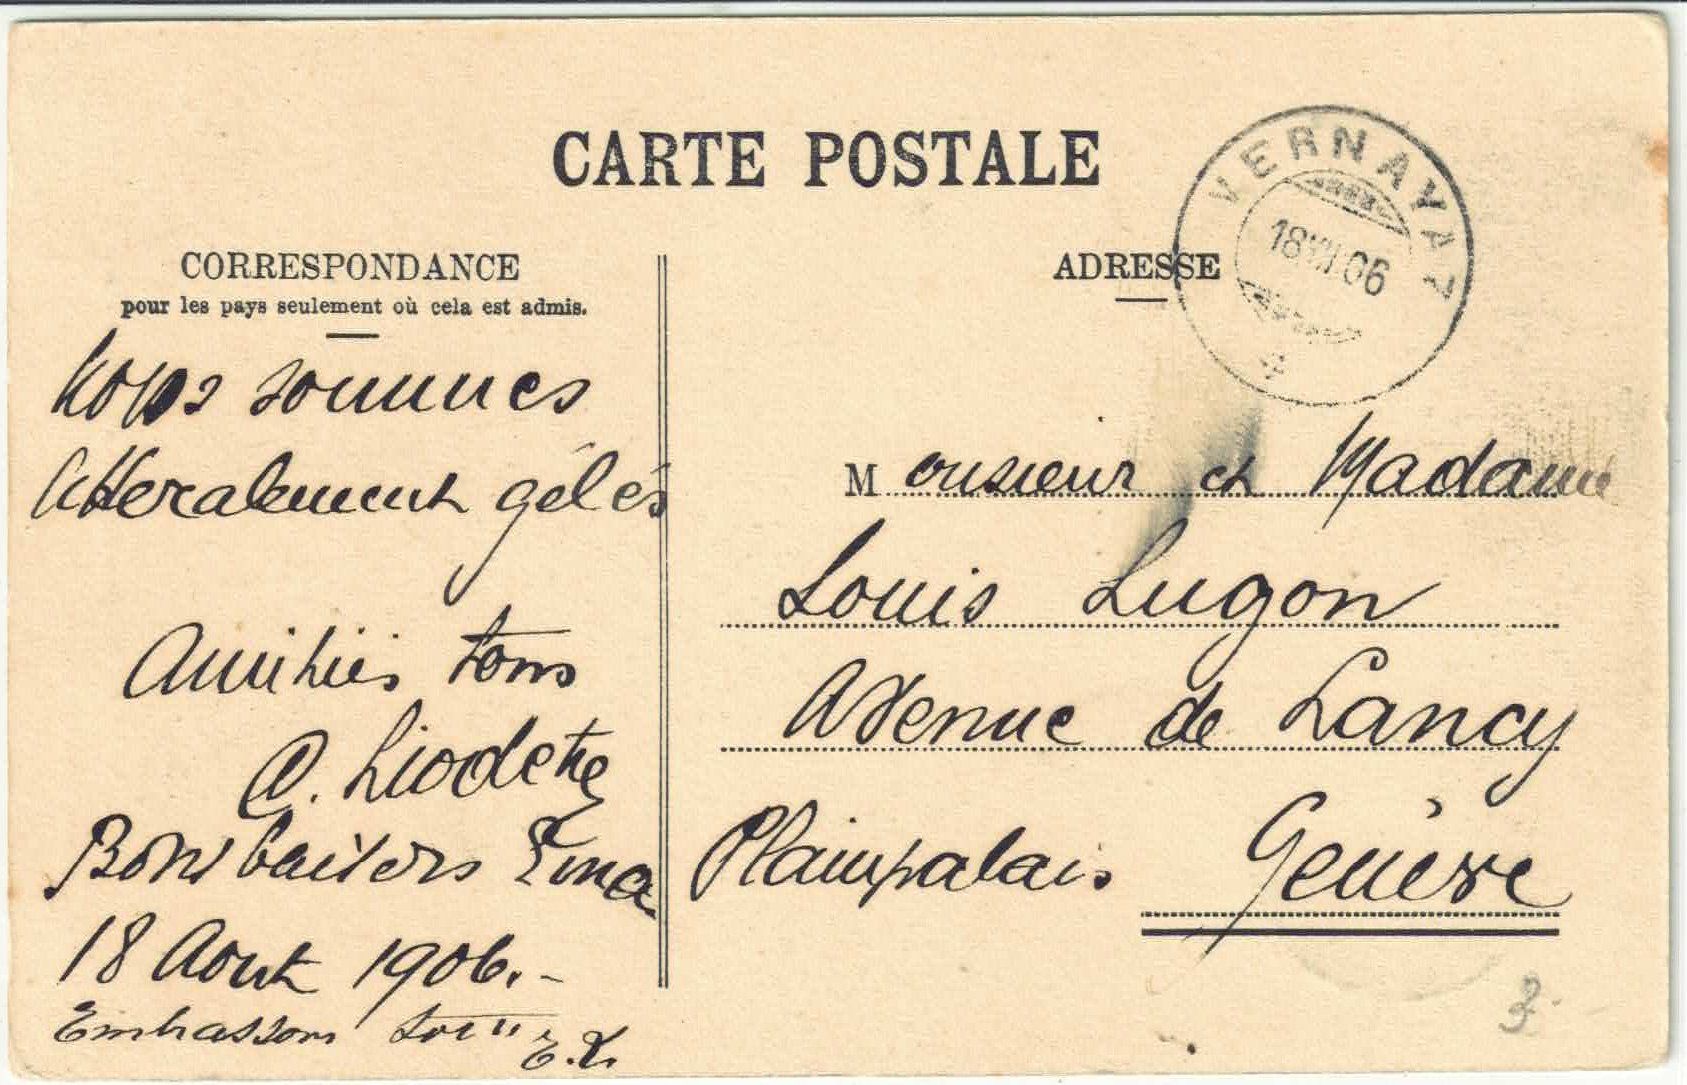 CARTE POSTALE
VERNAYAZ
18 VIII 06
CORRESPONDANCE
pour les pays seulement où cela est admis.
sommes
litteralement gélés
Amitiés tous
Bons baisers Ema
18 Aout 1906.-
Embrassons
ADRESSE
Monsieur et Madame
Louis Lugon
Avenue de Lancy
Plainpalais Genève